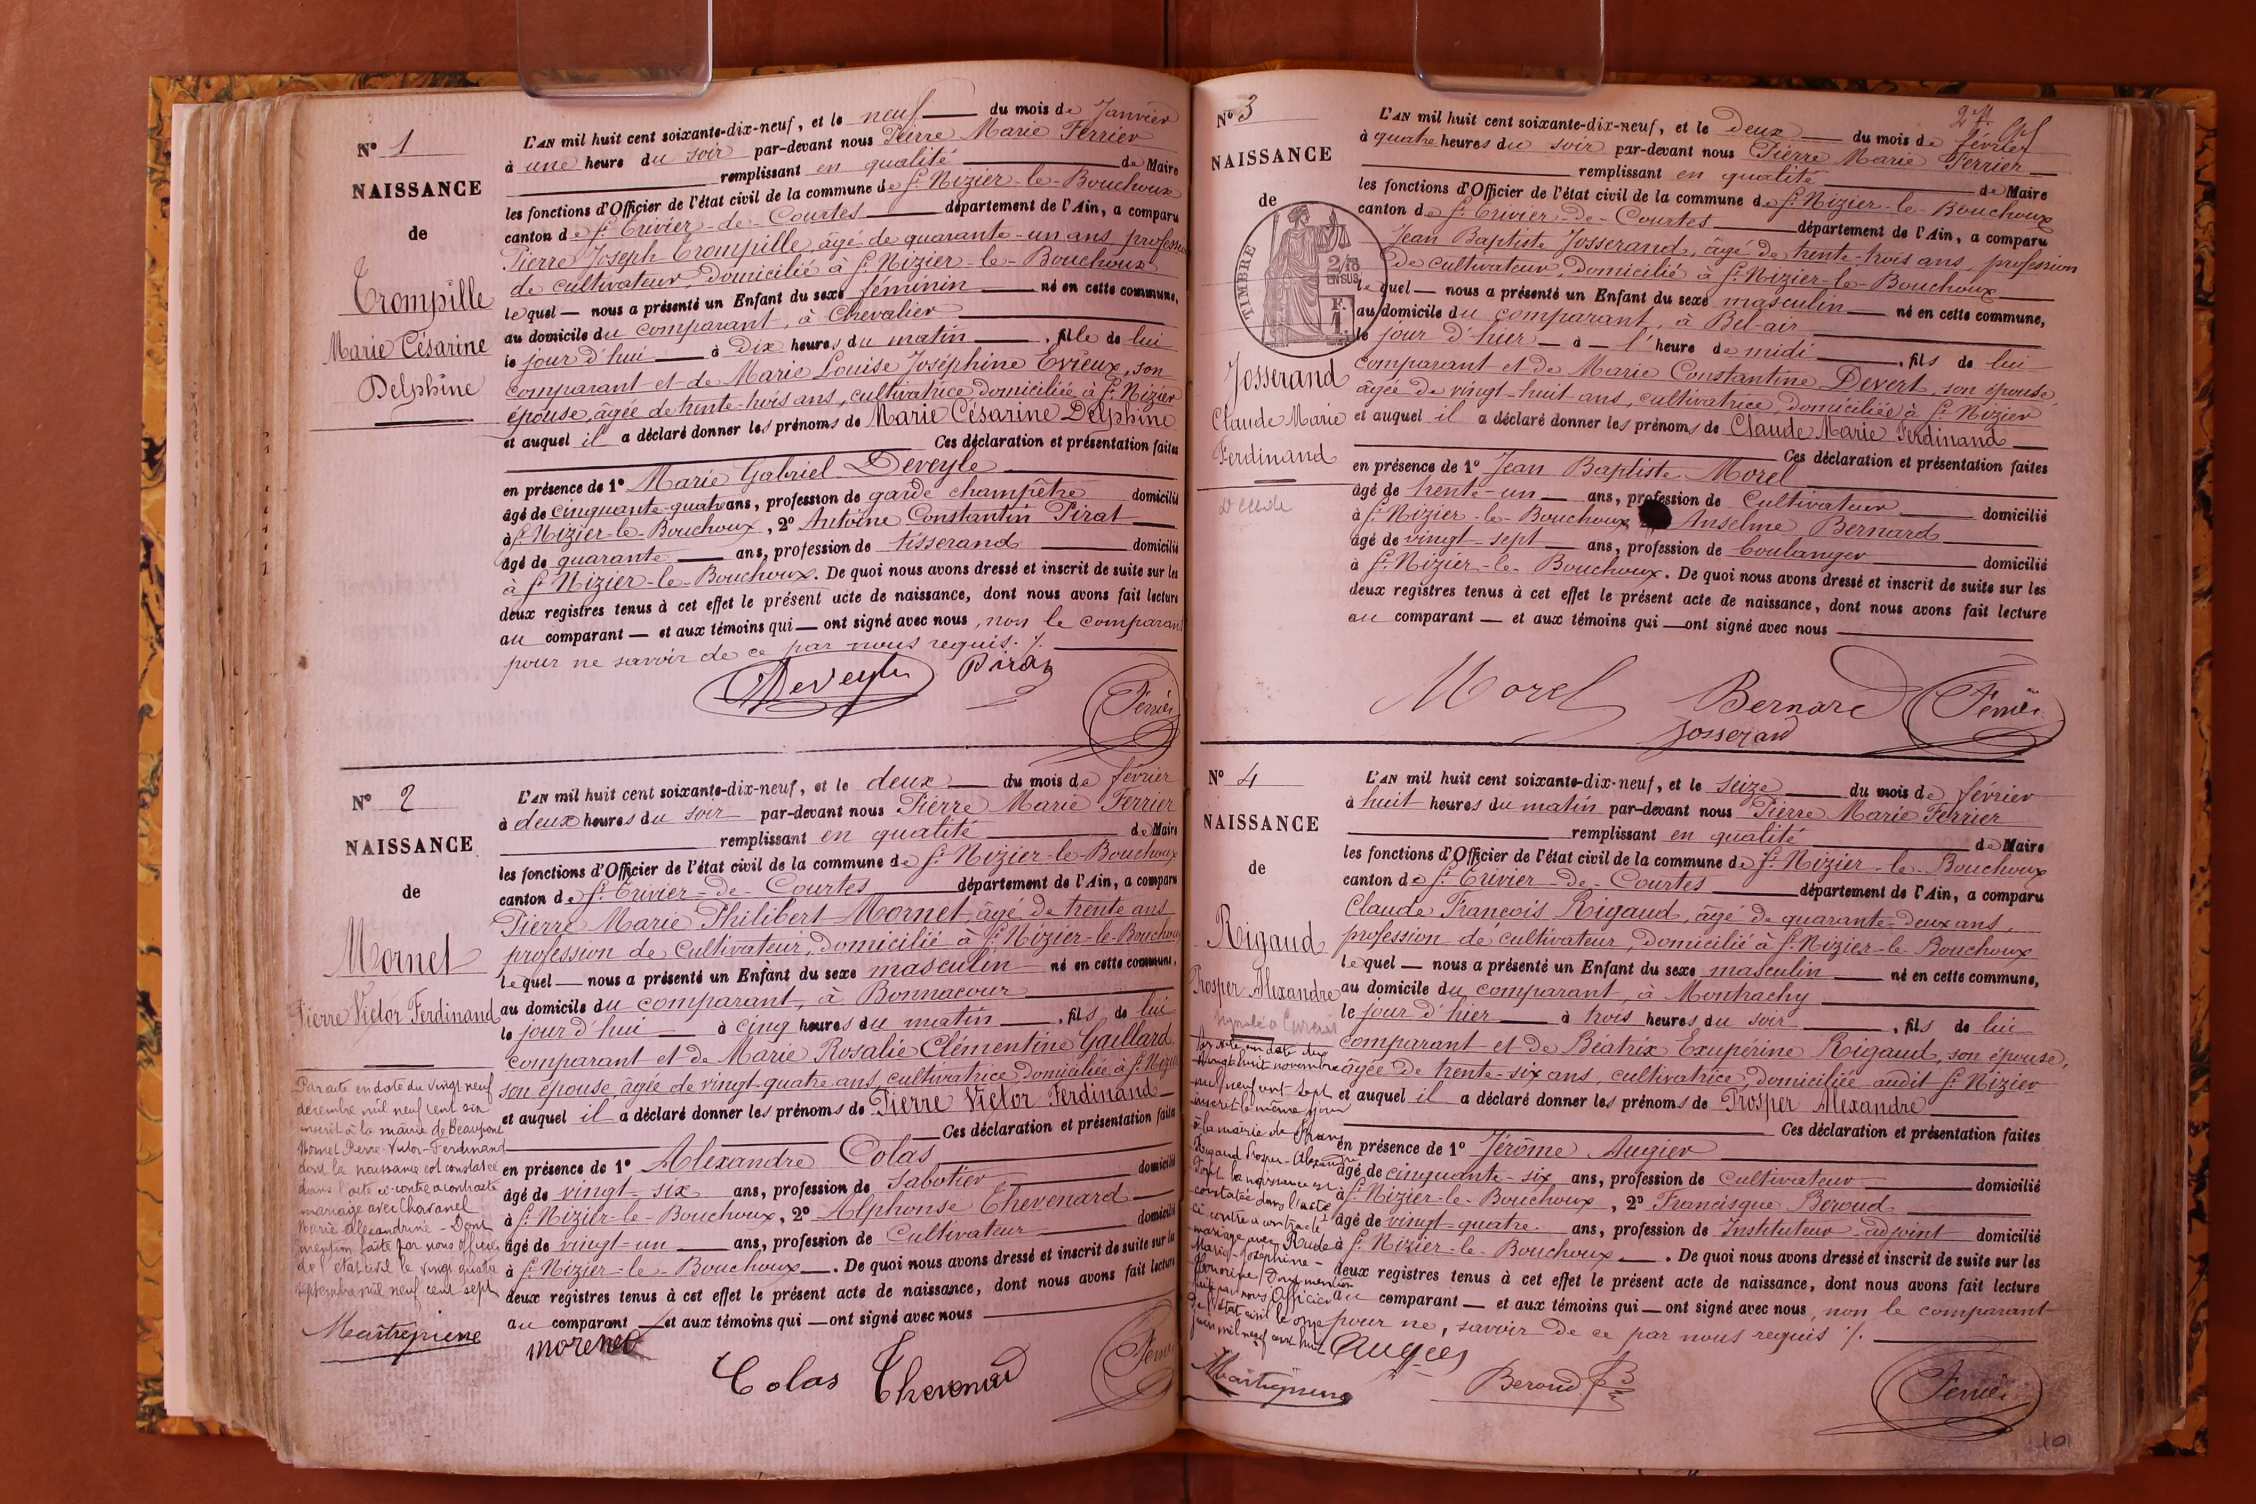 N° 1
NAISSANCE
de
Trompille
Marie Césarine
Delphine
L'AN mil huit cent soixante-dix-neuf, et le neuf du mois de Janvier
à une heure du soir par-devant nous Pierre Marie Ferrier
remplissant en qualité de Maire
les fonctions d'Officier de l'état civil de la commune de St Nizier-le-Bouchoux
canton de St Trivier-de-Courtes département de l'Ain, a comparu
Pierre Joseph Trompille, âgé de quarante-un ans, profession
de cultivateur, domicilié à St Nizier-le-Bouchoux
lequel — nous a présenté un Enfant du sexe féminin né en cette commune,
au domicile du comparant, à Chevalier
le jour d'hui à dix heures du matin, fille de lui
comparant et de Marie Louise Joséphine Evieux, son
épouse, âgée de trente-trois ans, cultivatrice, domiciliée à St Nizier
et auquel il a déclaré donner les prénoms de Marie Césarine Delphine
Ces déclaration et présentation faites
en présence de 1° Marie Gabriel Deveyle
âgé de cinquante-quatre ans, profession de garde champêtre domicilié
à St Nizier-le-Bouchoux, 2° Antoine Constantin Pirat
âgé de quarante ans, profession de tisserand domicilié
à St Nizier-le-Bouchoux. De quoi nous avons dressé et inscrit de suite sur les
deux registres tenus à cet effet le présent acte de naissance, dont nous avons fait lecture
au comparant — et aux témoins qui — ont signé avec nous, non le comparant
pour ne savoir de ce par nous requis ./.
Deveyle Pirat
Ferrier
N° 2
NAISSANCE
de
Mornet
Pierre Victor Ferdinand
L'AN mil huit cent soixante-dix-neuf, et le deux du mois de février
à deux heures du soir par-devant nous Pierre Marie Ferrier
remplissant en qualité de Maire
les fonctions d'Officier de l'état civil de la commune de St Nizier-le-Bouchoux
canton de St Trivier-de-Courtes département de l'Ain, a comparu
Pierre Marie Philibert Mornet, âgé de trente ans
profession de cultivateur, domicilié à St Nizier-le-Bouchoux
lequel — nous a présenté un Enfant du sexe masculin né en cette commune,
au domicile du comparant, à Bonnacour
le jour d'hui à cinq heures du matin, fils de lui
comparant et de Marie Rosalie Clémentine Gaillard
son épouse, âgée de vingt-quatre ans, cultivatrice, domiciliée à St Nizier
et auquel il a déclaré donner les prénoms de Pierre Victor Ferdinand
Ces déclaration et présentation faites
en présence de 1° Alexandre Colas
âgé de vingt-six ans, profession de sabotier domicilié
à St Nizier-le-Bouchoux, 2° Alphonse Thevenard
âgé de vingt-un ans, profession de cultivateur domicilié
à St Nizier-le-Bouchoux. De quoi nous avons dressé et inscrit de suite sur les
deux registres tenus à cet effet le présent acte de naissance, dont nous avons fait lecture
au comparant — et aux témoins qui — ont signé avec nous
Par acte en date du vingt neuf
décembre mil neuf cent six
inscrit à la mairie de
Mornet Pierre-Victor-Ferdinand
dont la naissance est constatée
dans l'acte ci-contre a contracté
mariage avec Chavanel
Marie Alexandrine - Dont
mention faite par nous officier
de l'état civil le vingt quatre
septembre mil neuf cent sept
mornet
Colas Thevenard
Ferrier
N° 3
NAISSANCE
de
TIMBRE
2/10
EN SUS
F.
1.
Josserand
Claude Marie
Ferdinand
Décédé
L'AN mil huit cent soixante-dix-neuf, et le deux du mois de février
à quatre heures du soir par-devant nous Pierre Marie Ferrier
remplissant en qualité de Maire
les fonctions d'Officier de l'état civil de la commune de St Nizier-le-Bouchoux
canton de St Trivier-de-Courtes département de l'Ain, a comparu
Jean Baptiste Josserand, âgé de trente-trois ans, profession
de cultivateur, domicilié à St Nizier-le-Bouchoux
lequel — nous a présenté un Enfant du sexe masculin né en cette commune,
au domicile du comparant, à Bel-air
le jour d'hier — à — l'heure de midi, fils de lui
comparant et de Marie Constantine Devert, son épouse,
âgée de vingt-huit ans, cultivatrice, domiciliée à St Nizier
et auquel il a déclaré donner les prénoms de Claude Marie Ferdinand
Ces déclaration et présentation faites
en présence de 1° Jean Baptiste Morel
âgé de trente-un ans, profession de cultivateur domicilié
à St Nizier-le-Bouchoux, Anselme Bernard
âgé de vingt-sept ans, profession de boulanger domicilié
à St Nizier-le-Bouchoux. De quoi nous avons dressé et inscrit de suite sur les
deux registres tenus à cet effet le présent acte de naissance, dont nous avons fait lecture
au comparant — et aux témoins qui — ont signé avec nous
Morel Bernard Ferrier
Josserand
N° 4
NAISSANCE
de
Rigaud
Prosper Alexandre
L'AN mil huit cent soixante-dix-neuf, et le seize du mois de février
à huit heures du matin par-devant nous Pierre Marie Ferrier
remplissant en qualité de Maire
les fonctions d'Officier de l'état civil de la commune de St Nizier-le-Bouchoux
canton de St Trivier-de-Courtes département de l'Ain, a comparu
Claude François Rigaud, âgé de quarante-deux ans,
profession de cultivateur, domicilié à St Nizier-le-Bouchoux
lequel — nous a présenté un Enfant du sexe masculin né en cette commune,
au domicile du comparant, à Montrachy
le jour d'hier à trois heures du soir, fils de lui
comparant et de Béatrix Exupérine Rigaud, son épouse,
âgée de trente-six ans, cultivatrice, domiciliée audit St Nizier
et auquel il a déclaré donner les prénoms de Prosper Alexandre
Ces déclaration et présentation faites
en présence de 1° Jérôme Augier
âgé de cinquante-six ans, profession de cultivateur domicilié
à St Nizier-le-Bouchoux, 2° Francisque Beroud
âgé de vingt-quatre ans, profession de Instituteur-adjoint domicilié
à St Nizier-le-Bouchoux. De quoi nous avons dressé et inscrit de suite sur les
deux registres tenus à cet effet le présent acte de naissance, dont nous avons fait lecture
au comparant — et aux témoins qui — ont signé avec nous, non le comparant
pour ne, savoir de ce par nous requis ./.
Par acte en date du
vingt huit novembre
mil neuf cent sept
inscrit le même jour
à la mairie de
Rigaud Prosper-Alexandre
dont la naissance est
constatée dans l'acte
ci contre a contracté
mariage avec Rude
Marie-Joséphine-
Honorine, Dont mention
faite par nous Officier
de l'état civil le onze
juin mil neuf cent huit
Beroud
Ferrier